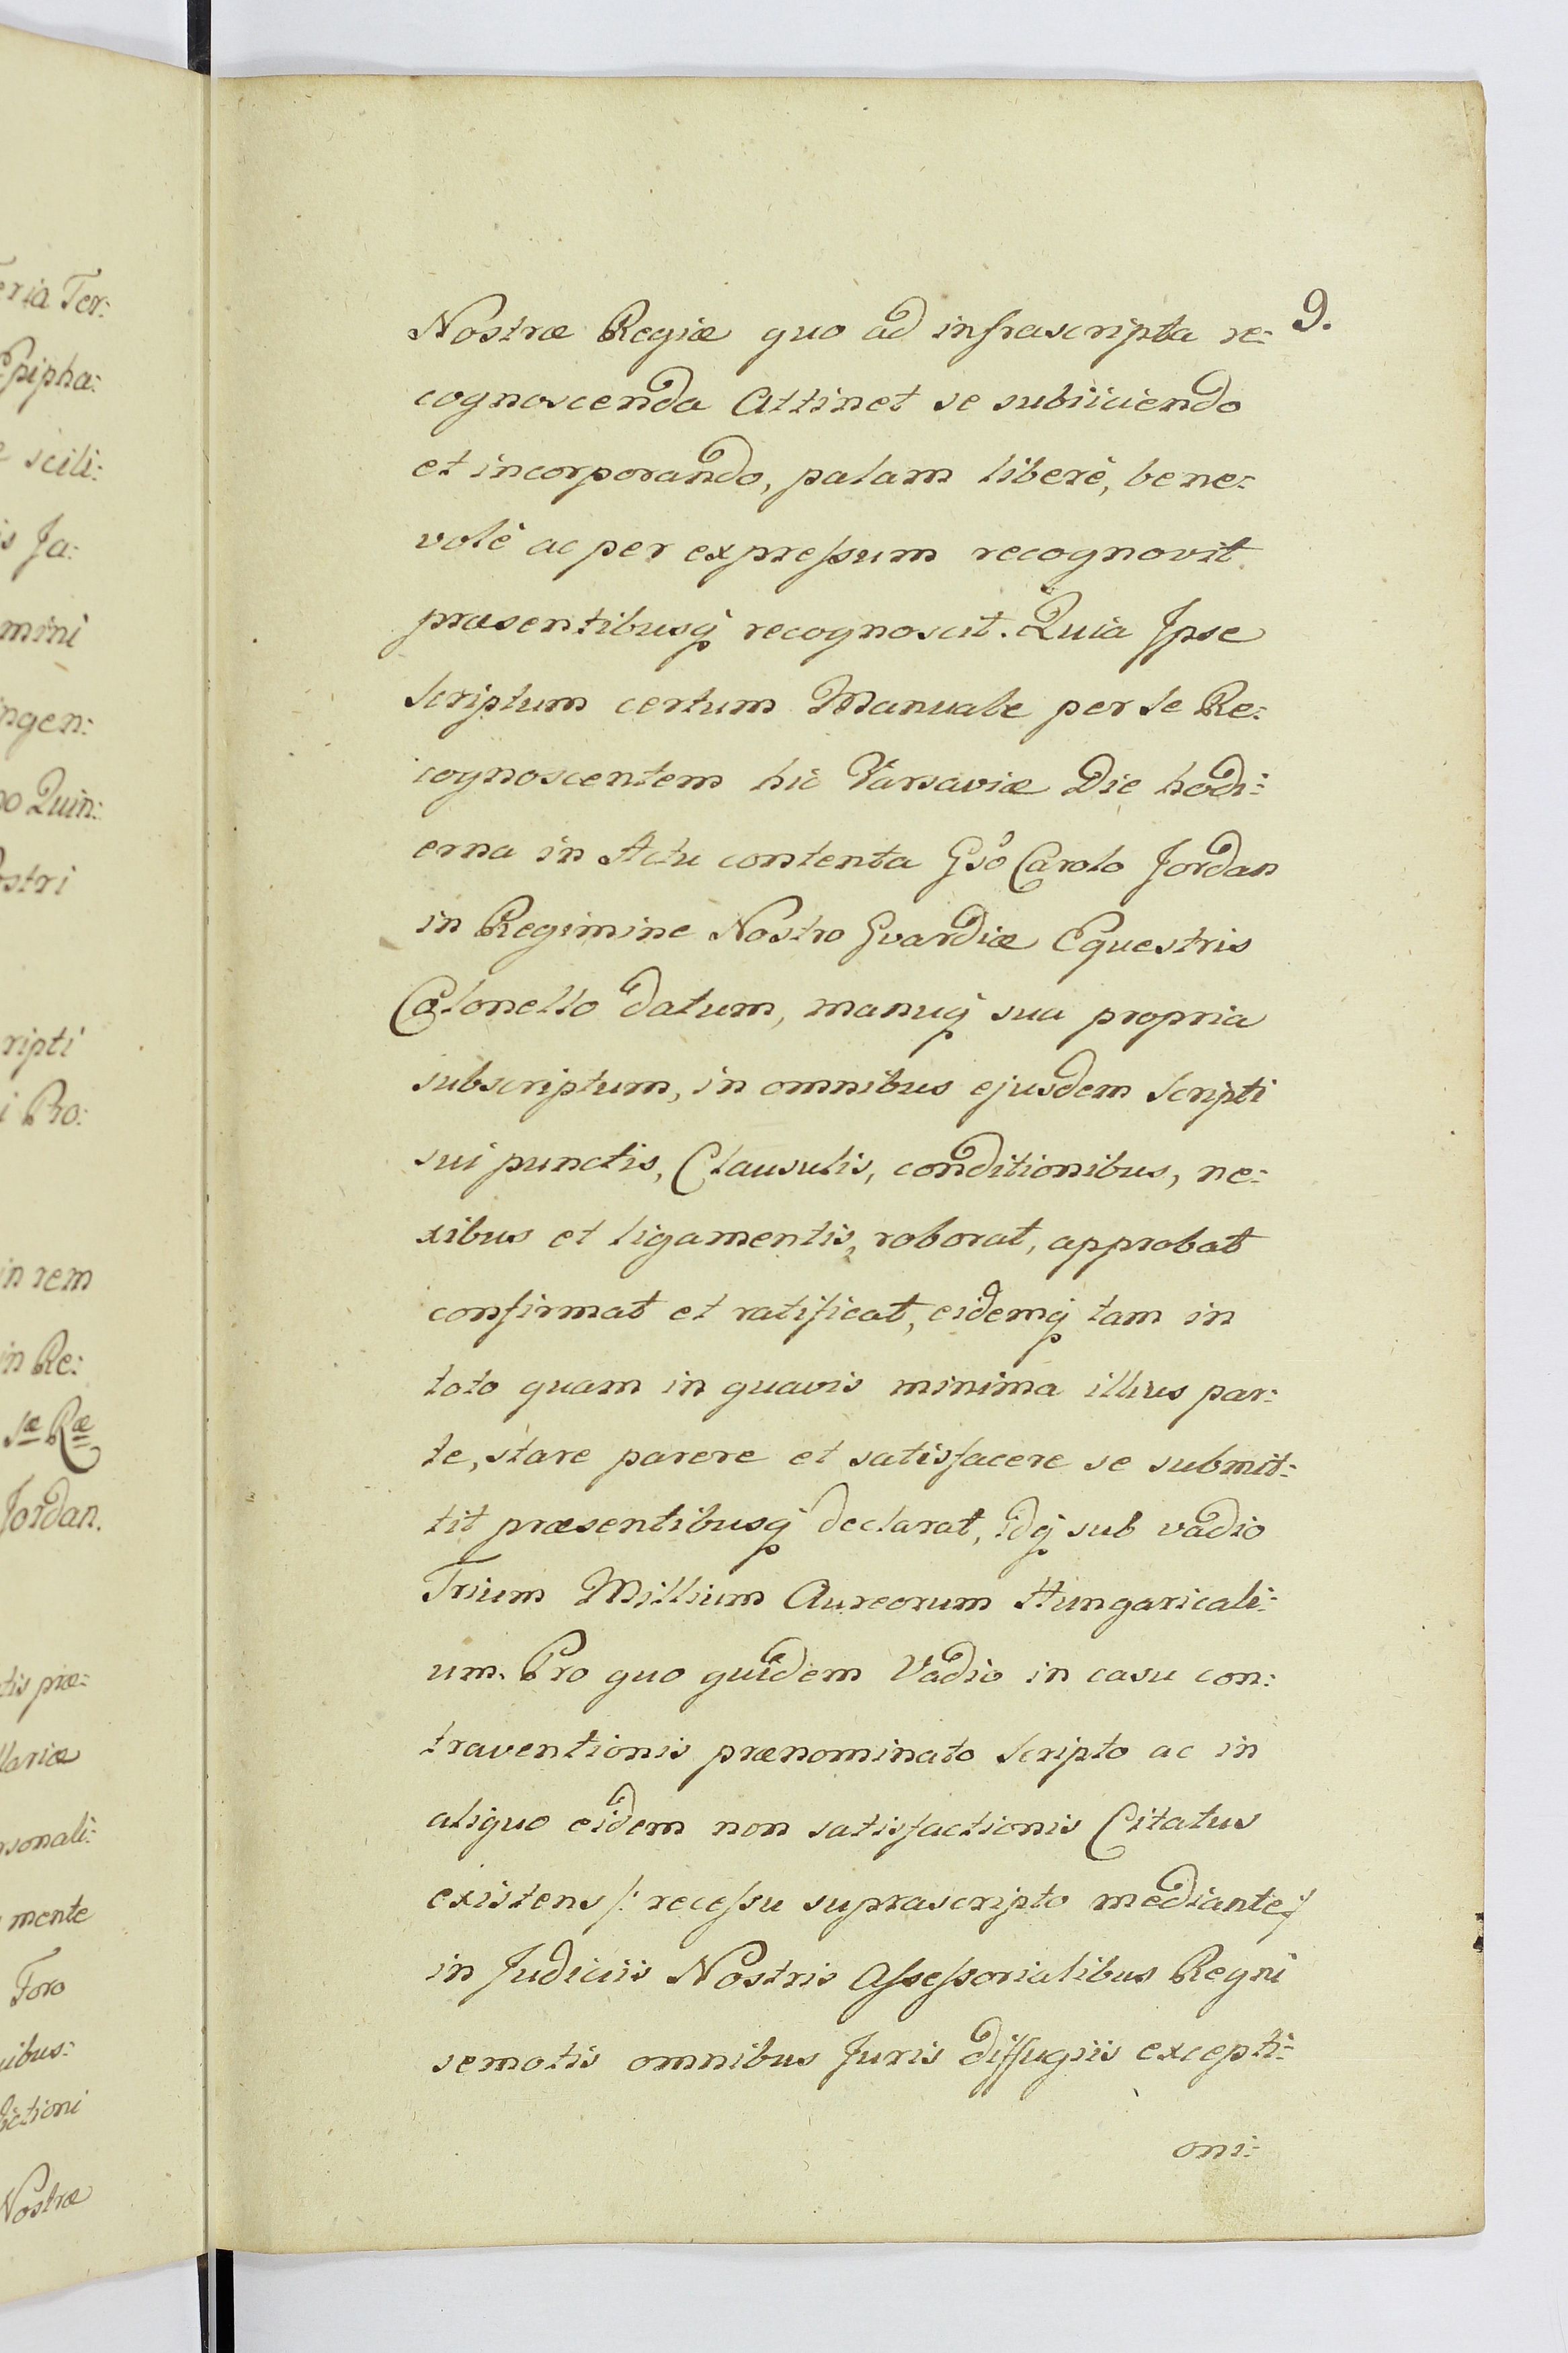 eria Ter:
Epipha:
e scili:
is Ja:
mini
ingen:
no Quin:
ostri
ripti
i Pro:
in rem
in Re:
sæ Ræ
Jordan.
tis præ:
llariæ
rsonali:
mente
Foro
uibus:
dictioni
Nostræ
9.
Nostræ Regiæ quo ad infrascripta re:
cognoscenda Attinet se subiiciendo
et incorporando, palam liberè, bene:
volè ac per expreſsum recognovit
præsentibusq recognoscit. Quia Ipse
Scriptum certum Manuale per se Re:
cognoscentem hic Varsaviæ Die hodi:
erna in Actu contenta Gso Carolo Jordan
in Regimine Nostro Gvardiæ Equestris
Colonello datum, manuq sua propria
subscriptum, in omnibus ejusdem Scripti
sui punctis, Clausulis, conditionibus, ne:
xibus et ligamentis, roborat, approbat
confirmat et ratificat, eidemq tam in
toto quam in quavis minima illius par:
te, stare parere et satisfacere se submit:
tit præsentibusq declarat, idq sub vadio
Trium Millium Aureorum Hungaricali:
um. Pro quo quidem Vadio in casu con:
traventionis prænominato Scripto ac in
aliquo eidem non satisfactionis Citatus
existens /: receſsu suprascripto mediante :/
in Judiciis Nostris Aſseſsorialibus Regni
semotis omnibus Juris diffugiis excepti:
oni: